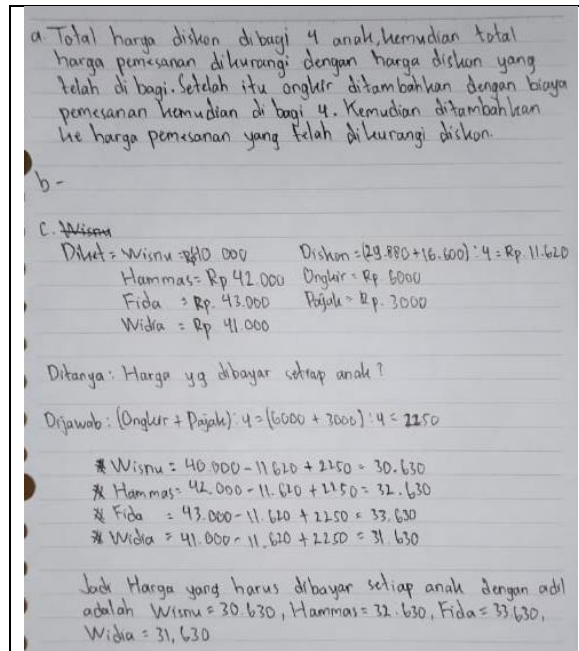 a. Total harga diskon dibagi 4 anak, kemudian total
harga pemesanan dikurangi dengan harga diskon yang
telah di bagi. Setelah itu ongkir ditambahkan dengan biaya
pemesanan kemudian di bagi 4. Kemudian ditambahkan
ke harga pemesanan yang telah dikurangi diskon.
b -
c. Wisnu
Diket = Wisnu = Rp40 000 Diskon = (29.880 + 16.600) : 4 = Rp. 11.620
Hammas = Rp 42.000 Ongkir = Rp. 6000
Fida = Rp. 43.000 Pajak = Rp. 3000
Widia = Rp 41.000
Ditanya : Harga yg dibayar setiap anak ?
Dijawab : (Ongkir + Pajak) : 4 = (6000 + 3000) : 4 = 2250
* Wisnu = 40.000 - 11620 + 2250 = 30.630
* Hammas = 42.000 - 11.620 + 2250 = 32.630
* Fida = 43.000 - 11.620 + 2250 = 33.630
* Widia = 41.000 - 11.620 + 2250 = 31.630
Jadi Harga yang harus dibayar setiap anak dengan adil
adalah Wisnu = 30.630, Hammas = 32.630, Fida = 33.630,
Widia = 31,630